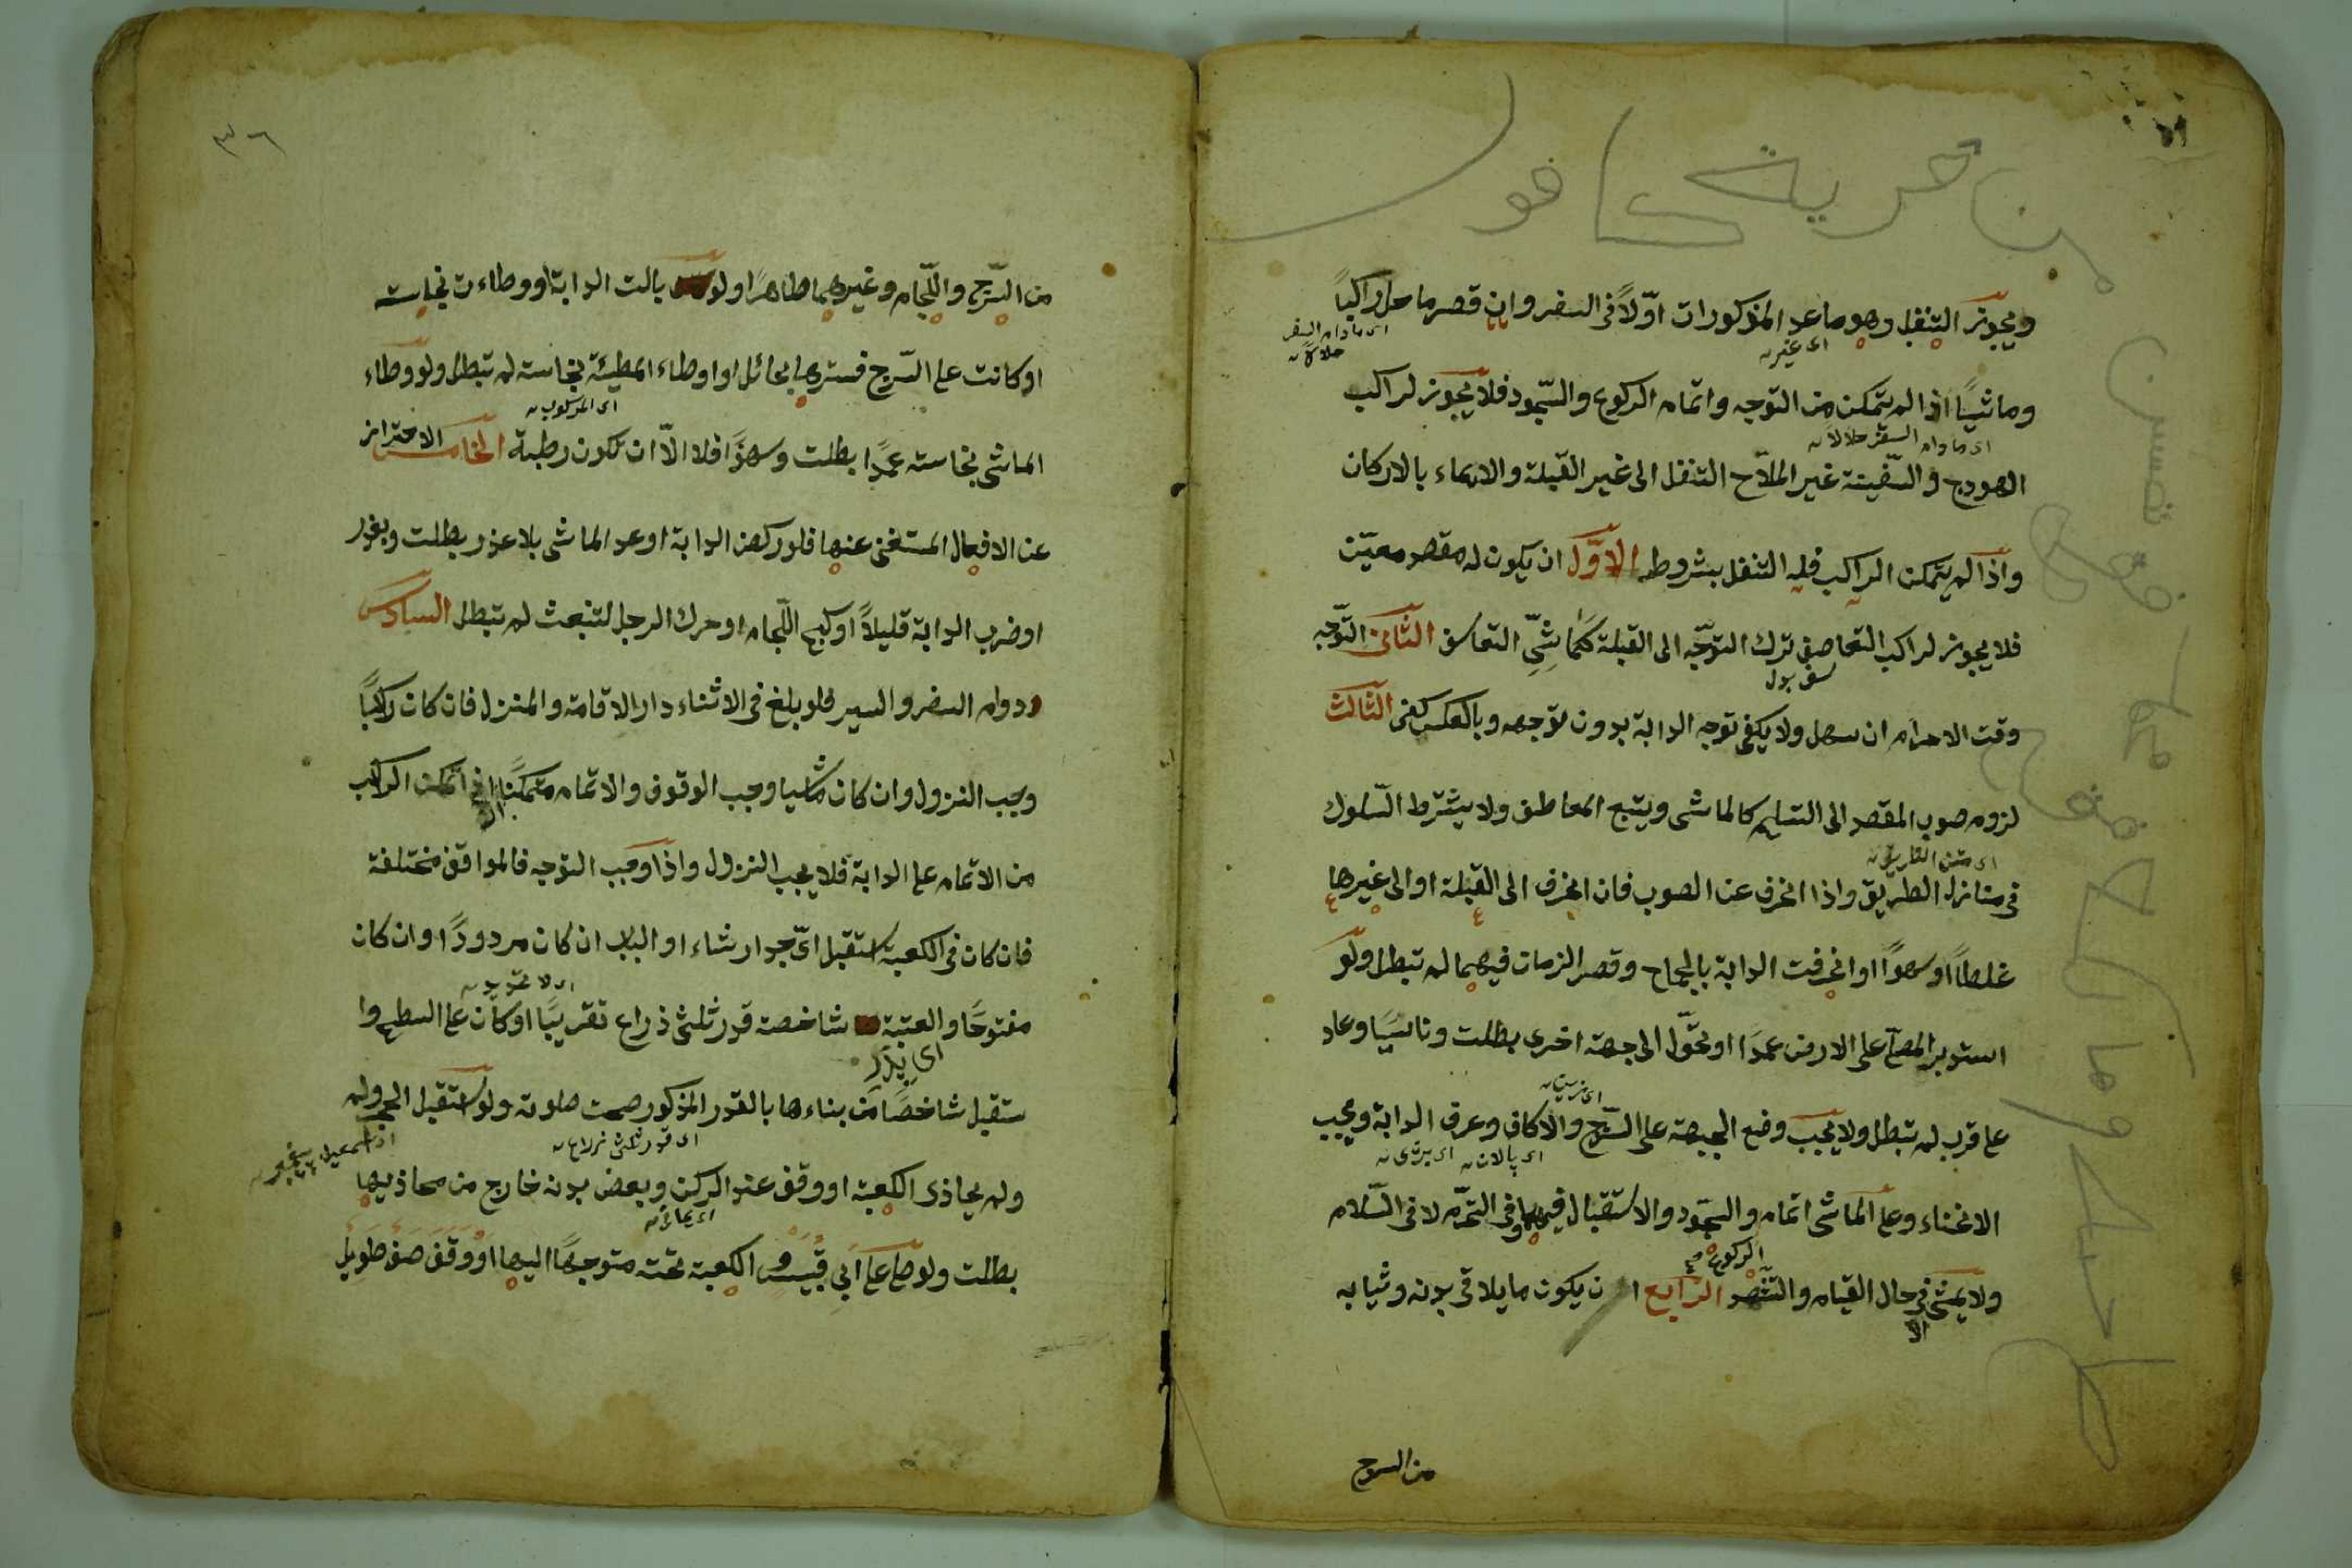 ويجوز التنفل وهو ماعدا المذكورات اوّلاً فى السفر وان قصر ماحل راكباً
اى غيره
اى مادام السفر حلالا
وماشيًا اذا لم يتمكن من التوجه واتمام الركوع والسّجود فلا يجوز لراكب
اى مادام السفر حلالاً
الهودج والسّفينة غير الملاّح التنفل الى غير القبلة والايماء بالاركان
واذا لم يتمكن الراكب فله التنفل بشروط الاوّل ان يكون له مقصد معيّن
فلا يجوز لراكب التعاصف ترك التوجّه الى القبلة كماشىّ التعاسف الثّانى التوّجه
وقت الاحرام ان سهل ولا يكفى توجه الدابة بدون توجهه وبالعكس كفى الثّالث
لزوم صوب المقصد الى التسليم كالماشى ويتبع المعاطف ولا يشترط السّلوك
فى منازل الطريق واذا انحرف عن الصوب فان انحرف الى القبلة او الى غيرها
غلطاً او سهوًا او انحرفت الدابة بالجماح وقصر الزمان فيهما لم تبطل ولو
استدبر المصلّى على الارض عمدًا او تحوّل الى جهة اخرى بطلت وناسيًا وعاد
على قرب لم تبطل ولا يجب وضع الجبهة على السّرج والاكاف وعرف الدابة ويجب
اى پالان
الانحناء وعلى الماشى اتمام والسجود والاستقبال فيهما وفى التحرّم لا فى السّلام
الركوع
ولا يمشى فى حال القيام والتشهد الرّابع ان يكون ما يلاقى بدنه وثيابه
الا
من السرج
٣٦
من السّرج واللّجام وغيرهما طاهرًا ولو بالت الدابة او وطاءت نجاسة
او كانت على السّرج فسترها بحائل او اوطاء المطيّة نجاسة لم تبطل ولو وطاء
اى المركوب
الماشى نجاسة عمدًا بطلت وسهوًا فلا الاّ ان تكون رطبة الخامس الاحتراز
عن الافعال المستغنى عنها فلو ركض الدابة او عد الماشى بلا عذر بطلت وبعذر
او ضرب الدابة قليلاً او كبح اللّجام او حرك الرجل لتنبعث لم تبطل السادس
دوام السفر والسير فلو بلغ فى الاثناء دار الاقامة والمنزل فان كان راكبًا
وجب النزول وان كان ماشيا وجب الوقوف والاتمام متمكنًا ان تمكن الراكب
من الاتمام على الدابة فلا يجب النزول واذا وجب التوجه فالمواقف مختلفة
فان كان فى الكعبة استقبل اىّ جدار شاء او الباب ان كان مردودًا وان كان
مفتوحًا والعتبة شاخصة قدر ثلثى ذراع تقريبًا او كان على السطح وا
ستقبل شاخصًا من بناءها بالقدر المذكور صحت صلوته ولو استقبل الحجر ولم
اى قدر ثلثى ذراع
ولم يحاذى الكعبة او وقف عند الركن وبعض بدنه خارج من محاذيها
اى يمانى
بطلت ولو صلّى على ابى قبيس والكعبة تحته متوجهًا اليها او وقف صف طويل